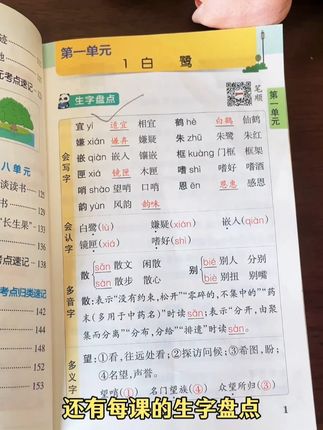 第一单元
1 白 鹭
生字盘点
笔顺
第一单元
会写字
宜 yí 适宜 相宜 鹤 hè 白鹤 仙鹤
嫌 xián 嫌弃 嫌疑 朱 zhū 朱鹭 朱红
嵌 qiàn 嵌入 镶嵌 框 kuàng 门框 框架
匣 xiá 镜匣 木匣 嗜 shì 嗜好 嗜酒
哨 shào 望哨 口哨 恩 ēn 恩惠 感恩
韵 yùn 风韵 韵味
会认字
白鹭(lù) 嫌疑(xián) 嵌入(qiàn)
镜匣(xiá) 嗜好(shì)
多音字
散 sǎn 散文 闲散 别 bié 别人 分别
sàn 散步 散心 biè 别扭 别嘴
散:表示“没有约束,松开”“零碎的,不集中的”“药
末(多用于中药名)”时读 sǎn;表示“分开,由聚
集而分离”“分布,分给”“排遣”时读 sàn。
多义字
望:①看,往远处看;②探访问候;③希图,盼;
④名望,声誉。
望哨(①) 名门望族(④) 众望所归(③)
1
迹
地
元考点速记
八单元
谈读书
125
“长生果”
135
138
考点归类速记
142
144
148
152
153
还有每课的生字盘点